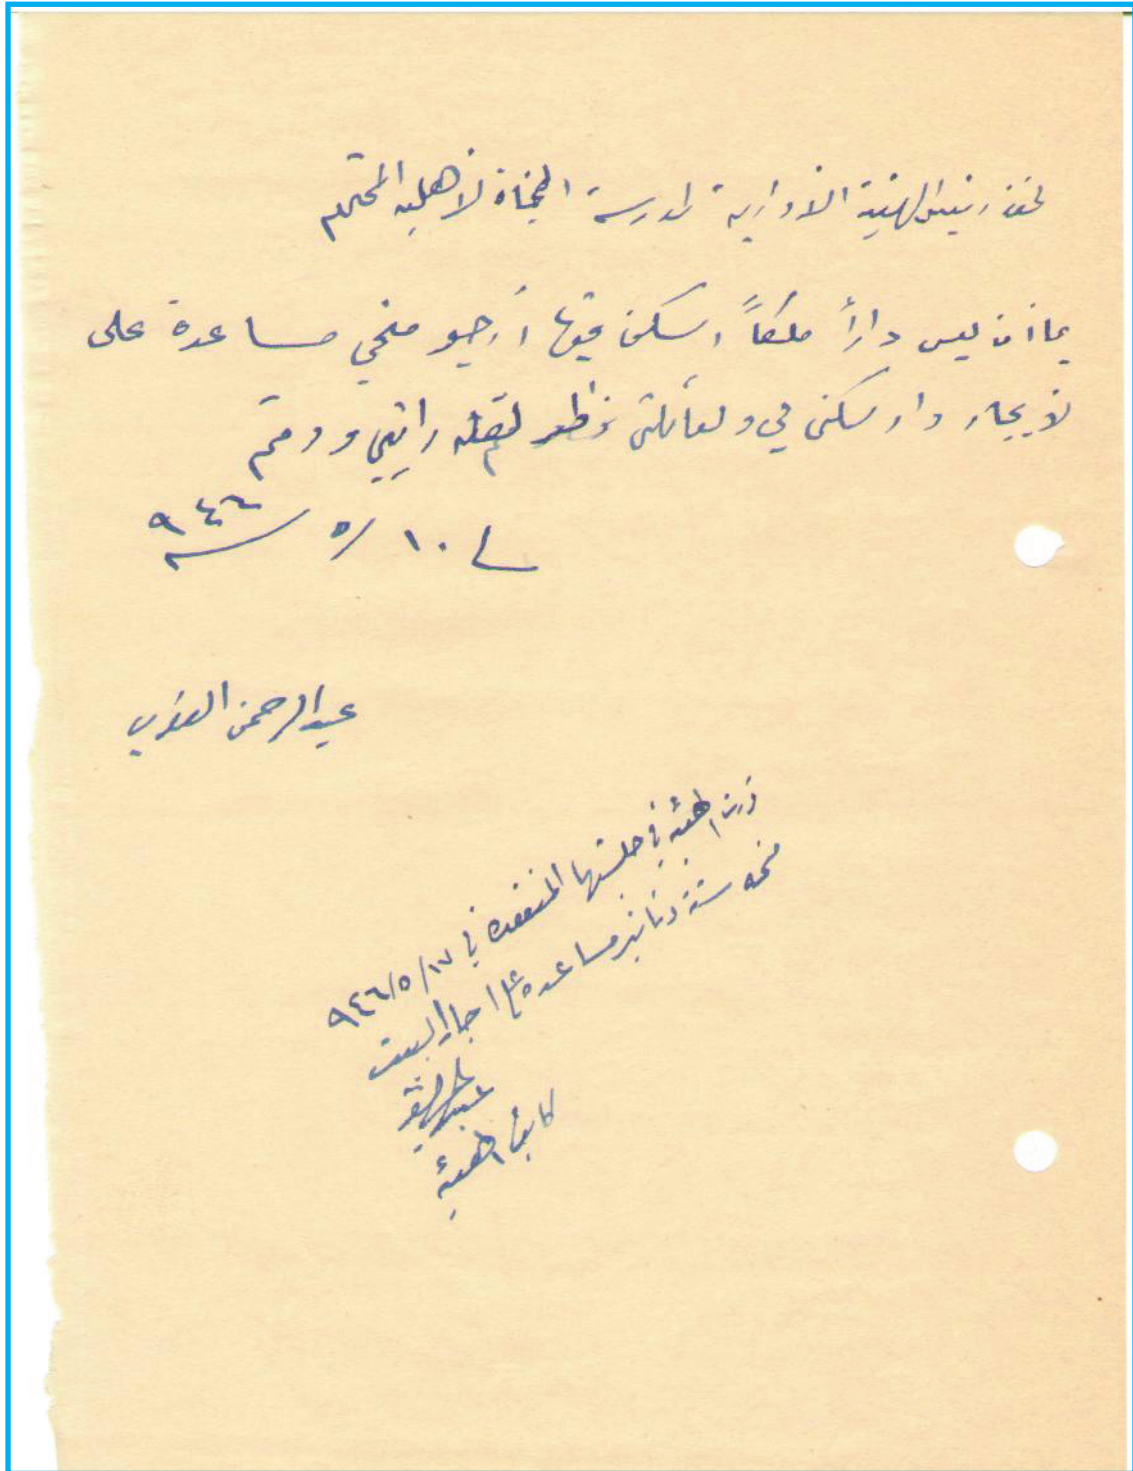 رئيس الهيئة الادارية لمدرسة النجاة لاهليه المحترم
بما ان ليس داراً ملكاً اسكن فيها ارجو منحي مساعدة على
لايجار دار سكنى لي ولعائلتي نظر لقلة راتبي ودمتم
١٠ / ٥ / ٩٤٦
عبدالرحمن
قررت الهيئة في جلستها المنعقده في ١٧/٥/٩٤٦
منحه ستة دنانير مساعده على اجار البيت
كاتب الهيئة